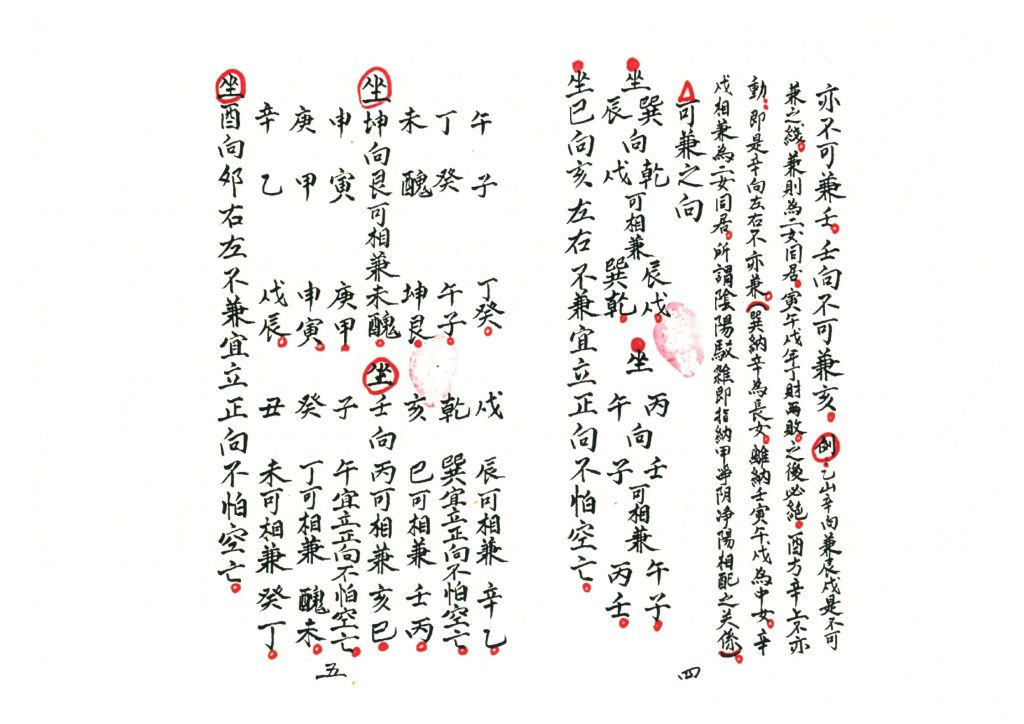 亦不可兼壬。壬向不可兼亥。例。乙山辛向兼辰戌是不可
兼之线。兼則為二女同居。寅午戌年丁財两敗。之後必絶。酉方辛上不亦
動。即是辛向左右不亦兼。（巽納辛為長女。離納壬寅午戌為中女。辛
戌相兼為二女同居。所謂陰陽駁雜即指納甲净阴净陽相配之关係）。
可兼之向
坐巽辰向乾戌可相兼辰戌。巽乾。坐丙午向壬子可相兼午子。丙壬。
坐巳向亥左右不兼宜立正向不怕空亡。
四
午 子 丁癸。 戌 辰可相兼辛乙。
丁 癸 午子。 乾 巽宜立正向不怕空亡。
未 醜 坤艮。 亥 巳可相兼壬丙。
坐坤向艮可相兼未醜。坐壬向丙可相兼亥巳。
申 寅 庚甲。 子 午宜立正向不怕空亡。
庚 甲 申寅。 癸 丁可相兼醜未。
辛 乙 戌辰。 丑 未可相兼癸丁。
坐酉向夘右左不兼宜立正向不怕空亡。
五